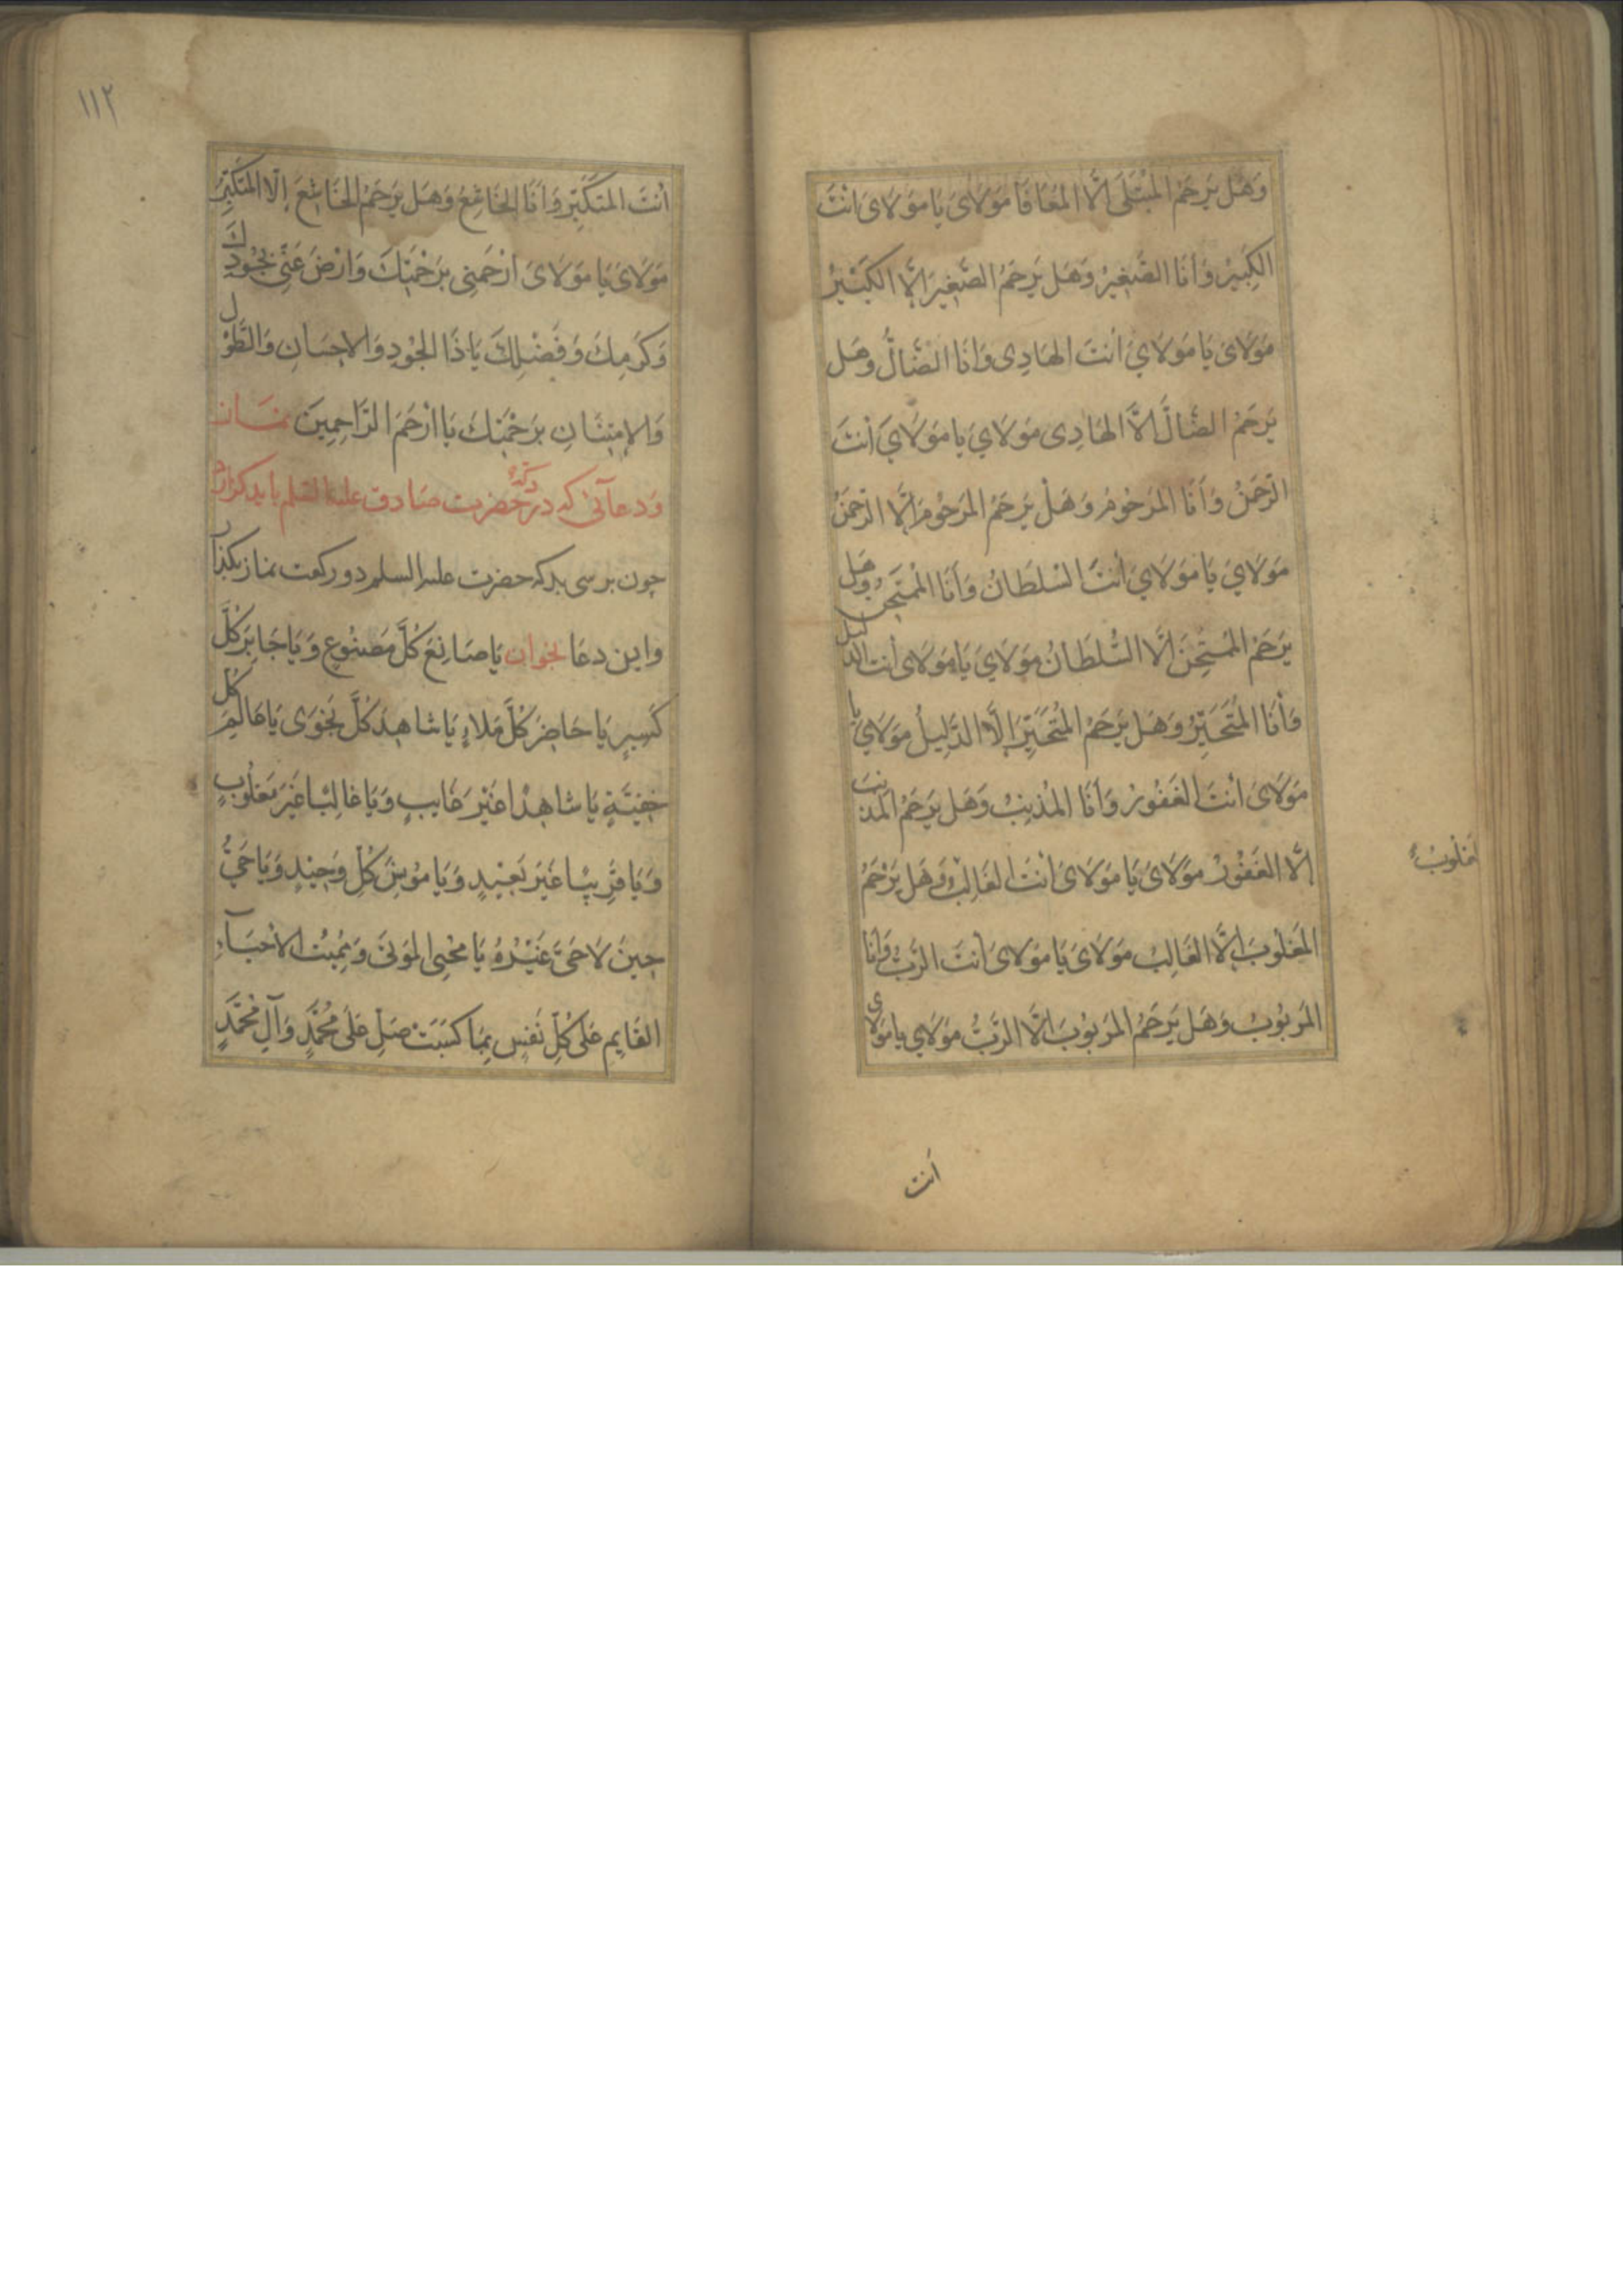 وَهَل يَرحَمُ المُبتَلى اِلَّا المُعَافَا مَولَاىَ يَا مَولَاىَ اَنتَ
الكَبِيرُ وَاَنَا الصَّغِيرُ وَهَل يَرحَمُ الصَّغِيرَ اِلَّا الكَبِيرُ
مَولَاىَ يَا مَولَايَ اَنتَ الهَادِى وَاَنَا الضَّالُّ وهَل
يَرحَمُ الضَّالَّ اِلَّا الهَادِى مَولَايَ يا مَولَايَ اَنتَ
الرَّحمَنُ وَاَنَا المَرحُومُ وَهَلْ يَرحَمُ المَرحُومَ اِلَّا الرَّحمَنُ
مَولَايَ يَا مَولَايَ اَنتَ السُّلطَانُ وَاَنَا المُمتَحَنُ وهَل
يَرحَمُ المُمتَحَنَ اِلَّا السُّلطَانُ مَولَايَ يَا مَولَاىَ اَنتَ الدَّلِيلُ
وَاَنَا المُتَحَيِّرُ وَهَل يَرحَمُ المُتَحَيِّرَ اِلَّا الدَّلِيلُ مَولَايَ يا
مَولَاىَ اَنتَ الغَفُورُ وَاَنَا المُذنِبُ وَهَل يَرحَمُ المُذنِبَ
اِلَّا الغَفُورُ مَولَاىَ يَا مَولَاىَ اَنتَ الغَالِبُ وَهَل يَرحَمُ
المَغلُوبَ اِلَّا الغَالِبُ مَولَاىَ يَا مَولَاىَ اَنتَ الرَّبُّ وَاَنَا
المَربُوبُ وَهَل يَرحَمُ المَربُوبَ اِلَّا الرَّبُّ مَولَايَ يا مَولاى
انت
١١٢
اَنتَ المُتَكَبِّرُ وَاَنَا الخَاشِعُ وَهَل يَرحَمُ الخَاشِعَ اِلَّا المُتَكَبِّرُ
مَولَاىَ يَا مَولَاىَ اِرْحَمنِى بِرَحْمَتِكَ وَارْضَ عَنّى بِجُودِكَ
وَكَرَمِكَ وَفَضْلِكَ يَا ذَا الجُودِ وَالاِحسَانِ وَالطَّوْل
وَالاِمتِنَانِ بِرَحْمَتِكَ يَا اَرْحَمَ الرَّاحِمِينَ نمَاز
وَدعآئى كه در حضرت صَادق عليه السلم بايد كزارد
چون برسى بدركه حضرت عليه السلم دو ركعت نماز بكذار
واين دعَا بخوان يَا صَانِعَ كُلِّ مَصنُوعٍ وَيَا جَابِرَ كُلِّ
كَسِيرٍ يَا حَاضِرَ كُلِّ مَلاءٍ يَا شَاهِدَ كُلِّ نَجوَى يَا عَالِمَ كُلِّ
خَفِيَّةٍ يَا شاهِدًا غَيْرَ غَايِبٍ وَيَا غالِبًا غَيرَ مَغلُوبٍ
وَيَا قَرِيبًا غَيرَ بَعِيدٍ وَيَا مُونِسَ كُلِّ وَحِيدٍ وَيَا حَىُّ
حِينَ لَا حَىَّ غَيْرُهُ يَا مُحيِىَ المَوتى وَمُمِيتَ الاَحيَآءِ
القَايِمِ عَلى كُلِّ نَفسٍ بِمَا كَسَبَت صَلِّ عَلى مُحَمَّدٍ وَآلِ مُحَمَّدٍ